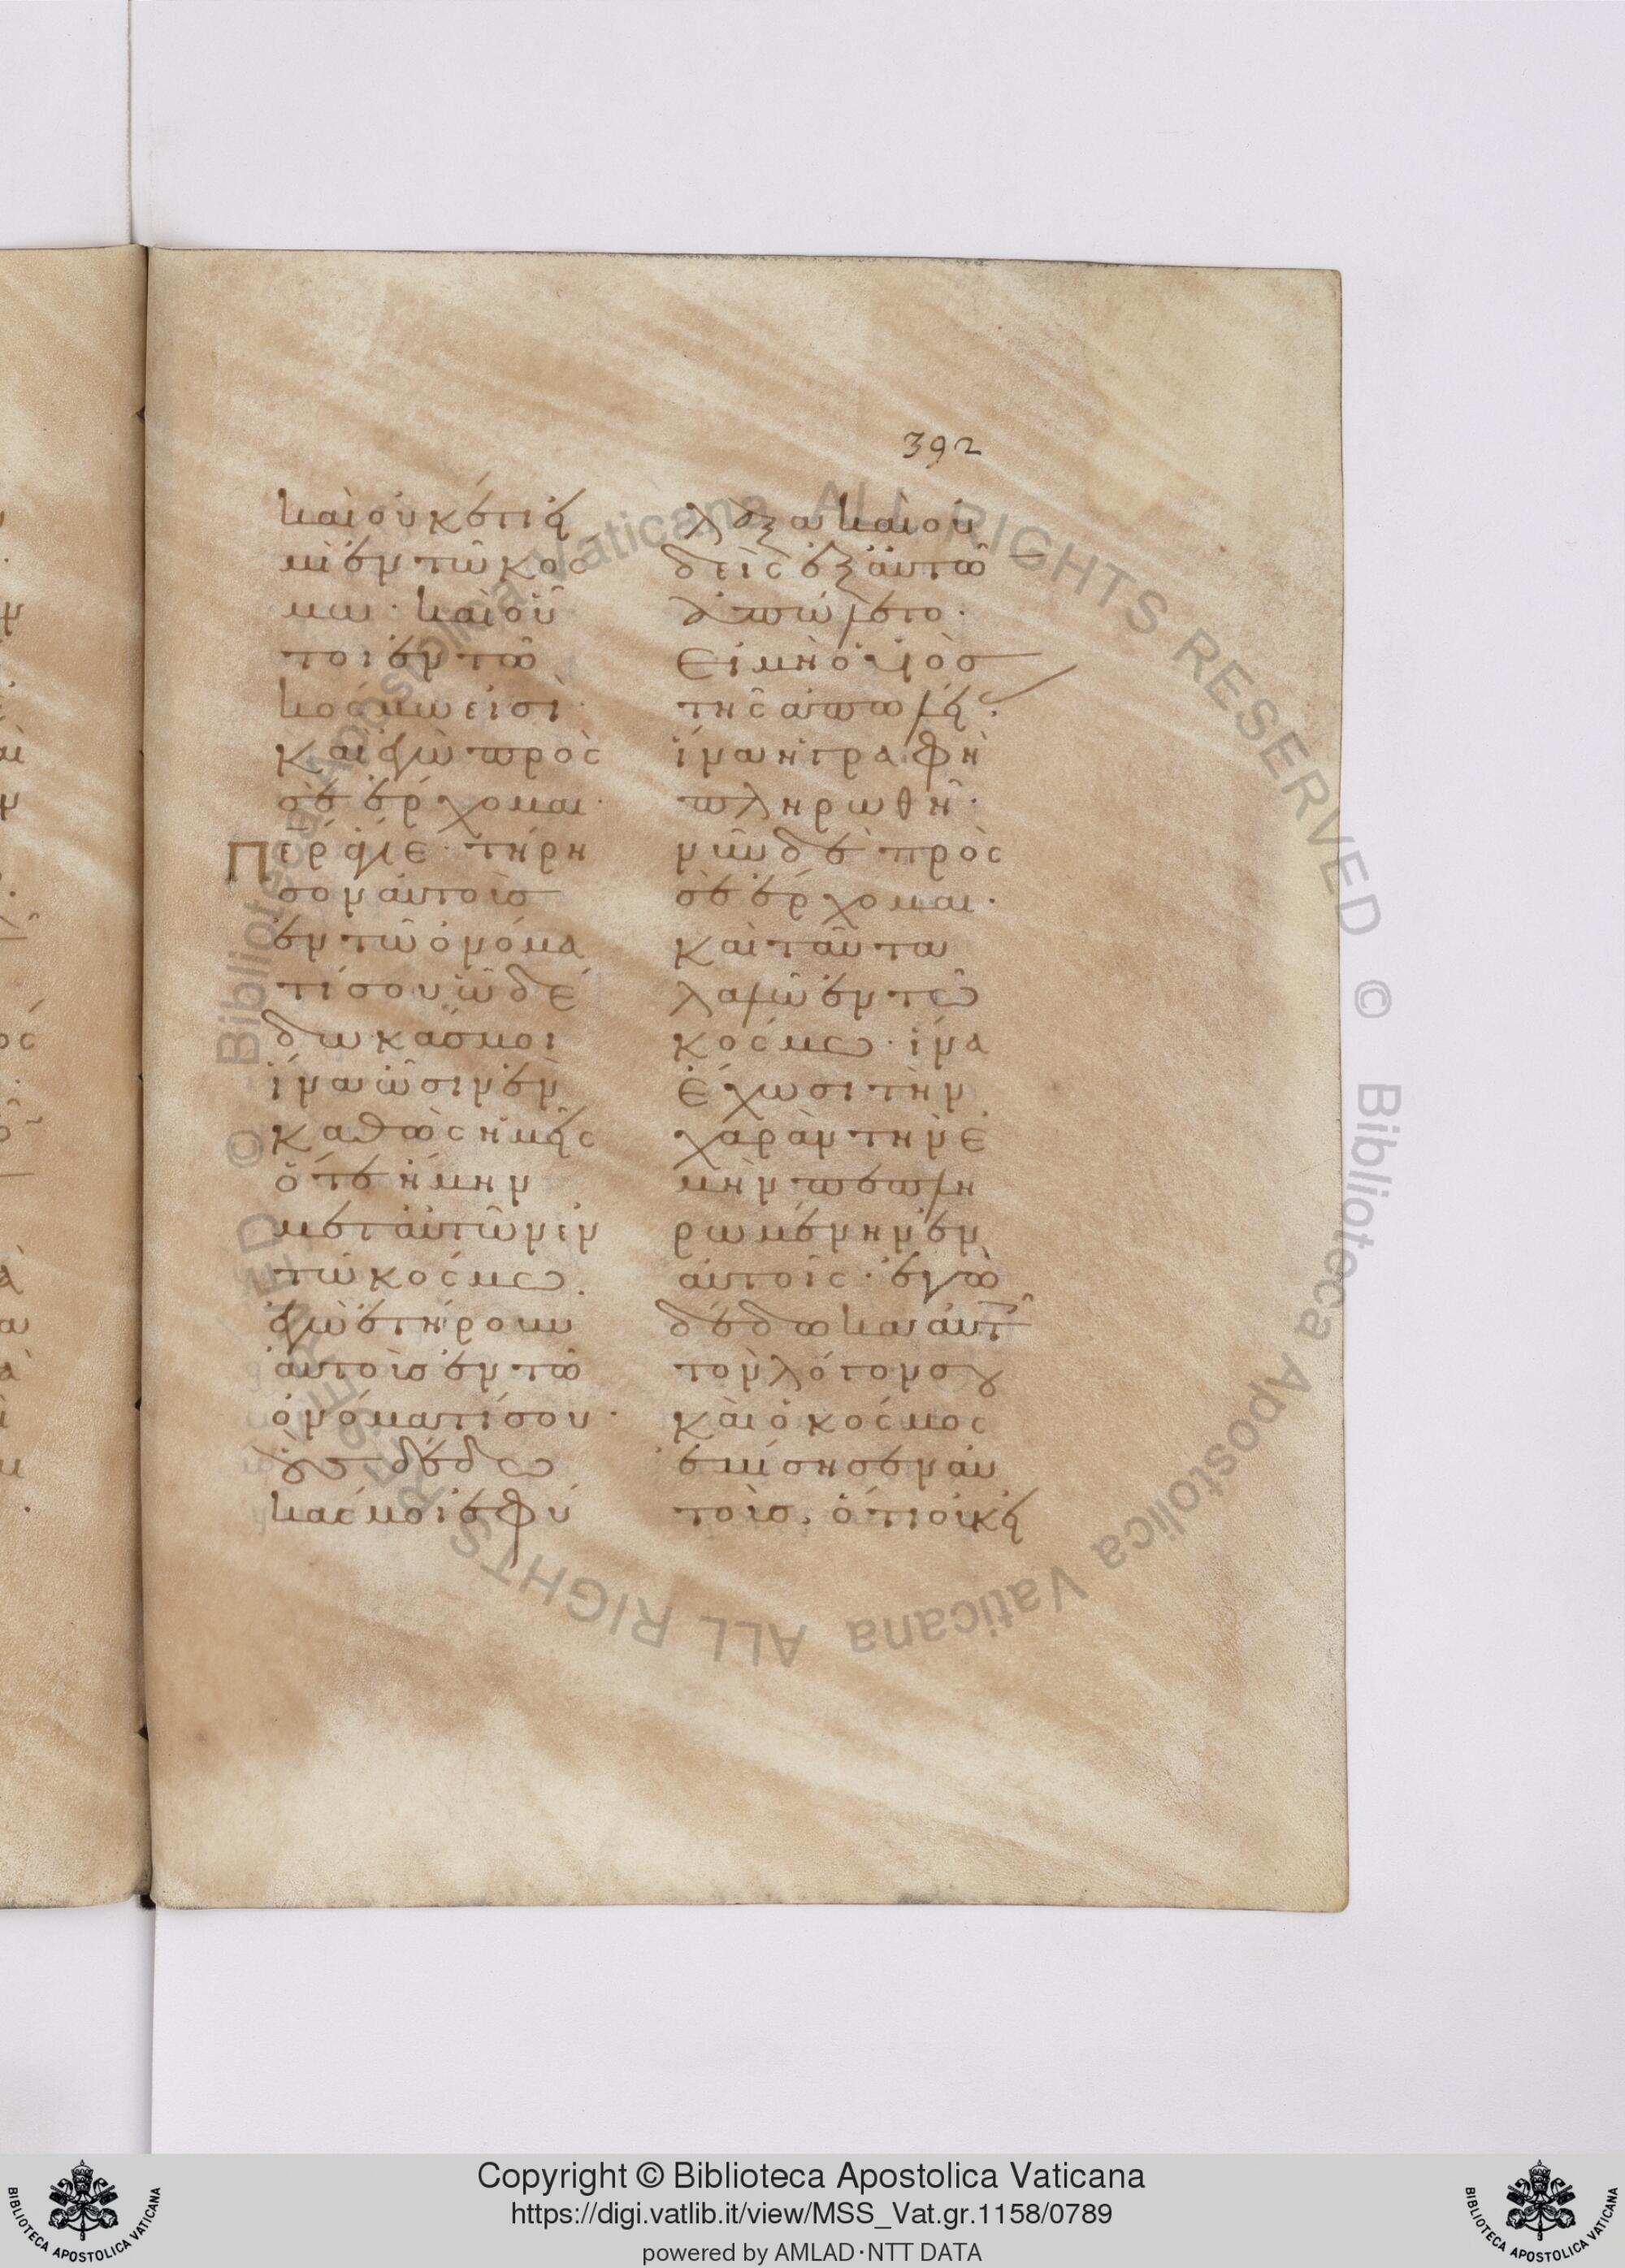 392
καὶ οὐκ ἔτι εἰ
μὶ ἐν τῶ κόσ
μω· καὶ οὗ
τοι ἐν τῶ
κόσμω εἰσὶ·
καἰγὼ πρὸς
σὲ ἔρχομαι·
Περ ἅγιε· τήρη
σον αὐτοὺσ
ἐν τῶ ὀνόμα
τί σου ὧ δέ
δωκάσ μοι
ἵνα ὦσιν ἓν
καθὼς ἡμεῖς
ὅτε ἤμην
μετ αὐτῶν ἐν
τῶ κόσμω.
ἐγὼ ἐτήρουν
αὐτοὺσ ἐν τῶ
ὀνόματί σου·
οὓσ δέδω
κάς μοι ἐφύ
λαξα καὶ οὐ
δεὶς ἐξ αὐτῶ
ἀπώλετο·
Εἰ μὴ ὁ υἱὸσ
τῆς ἀπωλεί·
ἵνα ἡ γραφὴ
πληρωθῆ·
νῦν δὲ πρὸς
σὲ ἔρχομαι·
καὶ ταῦτα
λαλῶ ἐν τῶ
κόσμω· ἵνα
ἔχωσι τὴν
χαρὰν τὴν ἐ
μὴν πεπλη
ρωμένην ἐν
αὐτοῖς· ἐγὼ
δέδωκα αὐτ
τὸν λόγον σου
καὶ ὁ κόσμος
ἐμίσησεν αὐ
τοὺσ, ὅτι οὐκ εἰ
Copyright © Biblioteca Apostolica Vaticana
https://digi.vatlib.it/view/MSS_Vat.gr.1158/0789
powered by AMLAD·NTT DATA
BIBLIOTECA APOSTOLICA VATICANA
BIBLIOTECA APOSTOLICA VATICANA
© Biblioteca Apostolica Vaticana ALL RIGHTS RESERVED © Biblioteca Apostolica Vaticana ALL RIGHTS RESERVED